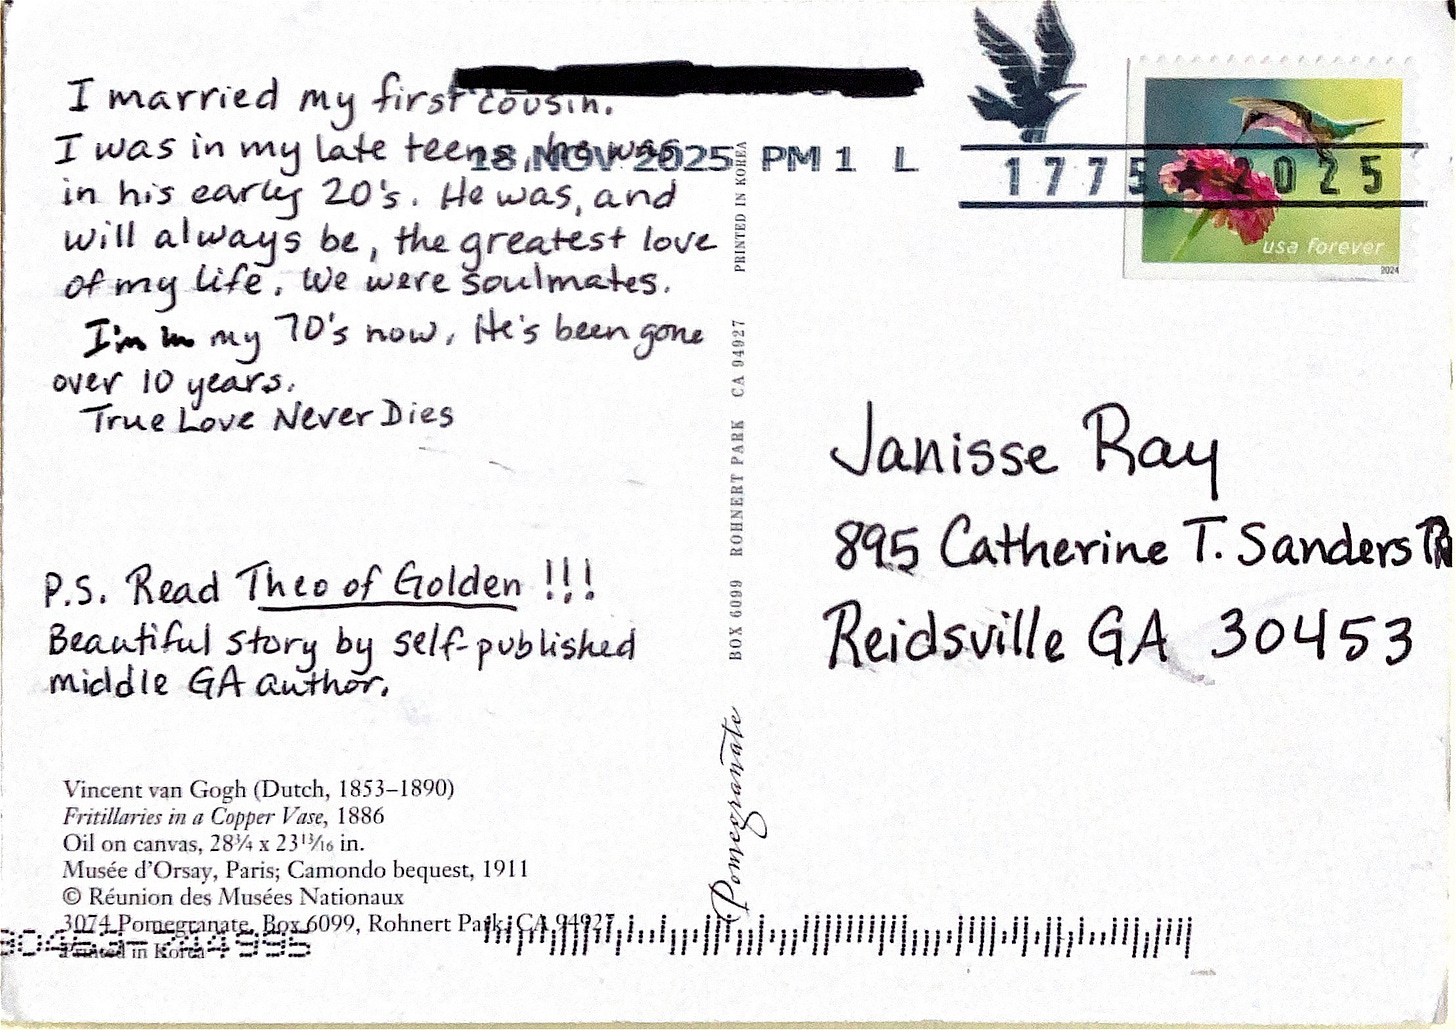 I married my first cousin.
I was in my late teens, he was
in his early 20's. He was, and
will always be, the greatest love
of my life. We were soulmates.
I'm in my 70's now. He's been gone
over 10 years.
True Love Never Dies
P.S. Read Theo of Golden !!!
Beautiful story by self-published
middle GA author.
Vincent van Gogh (Dutch, 1853–1890)
Fritillaries in a Copper Vase, 1886
Oil on canvas, 28¾ x 23¹³⁄₁₆ in.
Musée d'Orsay, Paris; Camondo bequest, 1911
© Réunion des Musées Nationaux
3074 Pomegranate, Box 6099, Rohnert Park, CA 94927
Printed in Korea
Pomegranate BOX 6099 ROHNERT PARK CA 94927 PRINTED IN KOREA
18 NOV 2025 PM 1 L
1775 2025
usa forever
2024
Janisse Ray
895 Catherine T. Sanders
Reidsville GA 30453